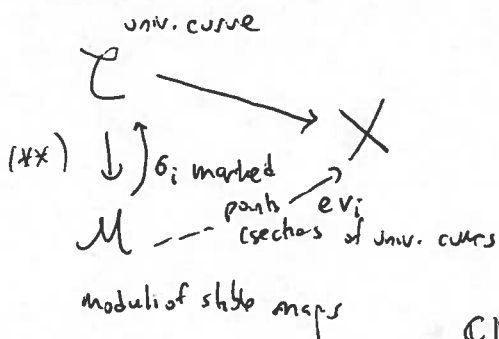 univ. curve
C
X
(**)
σi marked
points evi
M
(sections of univ. curves
moduli of stable maps